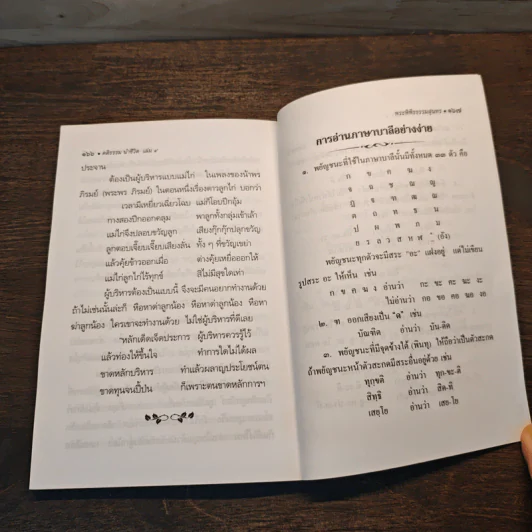 ๑๖๖ • คติธรรม นำชีวิต เล่ม ๙
ประจาน
ต้องเป็นผู้บริหารแบบแม่ไก่ ในเพลงของน้าพร
ภิรมย์ (พระพร ภิรมย์) ในตอนหนึ่งเรื่องดาวลูกไก่ บอกว่า
เวลามีเหยี่ยวเฉี่ยวโฉบ แม่ก็โอบปีกอุ้ม
กางสองปีกออกคลุม พาลูกทั้งกลุ่มเข้าเล้า
แม่ไก่จึงปลอบขวัญลูก เสียงกุ๊กกุ๊กปลุกขวัญ
ลูกตอบเจี๊ยบเจี๊ยบเสียงสั่น ทั้ง ๆ ที่ขวัญเขย่า
แล้วคุ้ยข้าวออกเมื่อ ต่างคุ้ยเหยื่อออกให้
แม่ไก่ลูกไก่ไร้ทุกข์ สิ่ไม่มีสุขใดเท่า
ผู้บริหารต้องเป็นแบบนี้ จึงจะมีคนอยากทำงานด้วย
ถ้าไม่เช่นนั้นล่ะก็ หือหาด่าลูกน้อง หือหาด่าลูกน้อง หือหา
ฆ่าลูกน้อง ใครเขาจะทำงานด้วย ไม่ใช่ผู้บริหารที่ดีเลย
"หลักเด็ดเจ็ดประการ ผู้บริหารควรรู้ไว้
แล้วท่องให้ขึ้นใจ ทำการใดไม่ได้ผล
ขาดหลักบริหาร ทำแล้วผลาญประโยชน์ตน
ขาดทุนจนปี้ป่น ก็เพราะตนขาดหลักการฯ
พระพิพิธธรรมสุนทร • ๑๖๗
การอ่านภาษาบาลีอย่างง่าย
๑. พยัญชนะที่ใช้ในภาษาบาลีนั้นมีทั้งหมด ๓๓ ตัว คือ
ก ข ค ฆ ง
จ ฉ ช ฌ ญ
ฏ ฐ ฑ ฒ ณ
ต ถ ท ธ น
ป ผ พ ภ ม
ย ร ล ว ส ห ฬ ํ (อัง)
พยัญชนะทุกตัวจะมีสระ "อะ" แฝงอยู่ แต่ไม่เขียน
รูปสระ อะ ให้เห็น เช่น
ก ข ค ฆ ง อ่านว่า กะ ขะ คะ ฆะ งะ
ไม่อ่านว่า กอ ขอ คอ ฆอ งอ
๒. ฑ ออกเสียงเป็น "ด" เช่น
บัณฑิต อ่านว่า บัน-ดิต
๓. พยัญชนะที่มีจุดข้างใต้ (พินทุ) ให้ถือว่าเป็นตัวสะกด
ถ้าพยัญชนะหน้าตัวสะกดมีสระอื่นอยู่ด้วย เช่น
ทุกฺขติ อ่านว่า ทุก-ขะ-ติ
สิทฺธิ อ่านว่า สิด-ทิ
เสยฺโย อ่านว่า เสย-โย